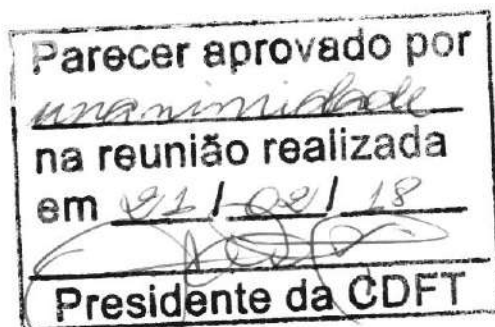 Parecer aprovado por
unanimidade
na reunião realizada
em 21 / 02 / 18
Presidente da CDFT